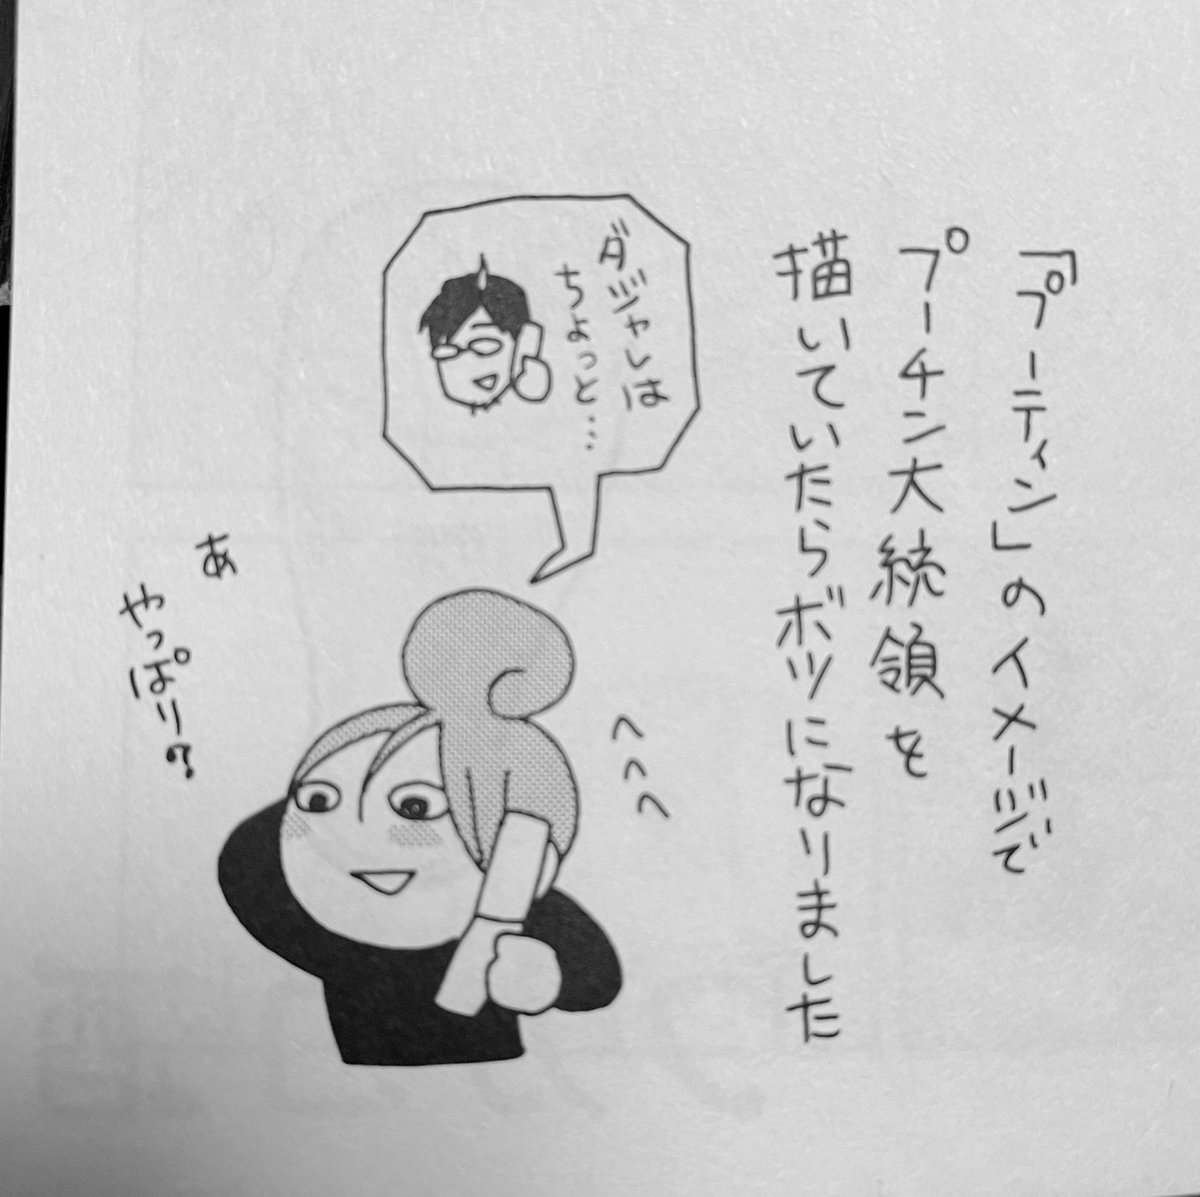 「プーティン」のイメージで
プーチン大統領を
描いていたらボツになりました
ダジャレは
ちょっと…
へへへ
あ
やっぱり?